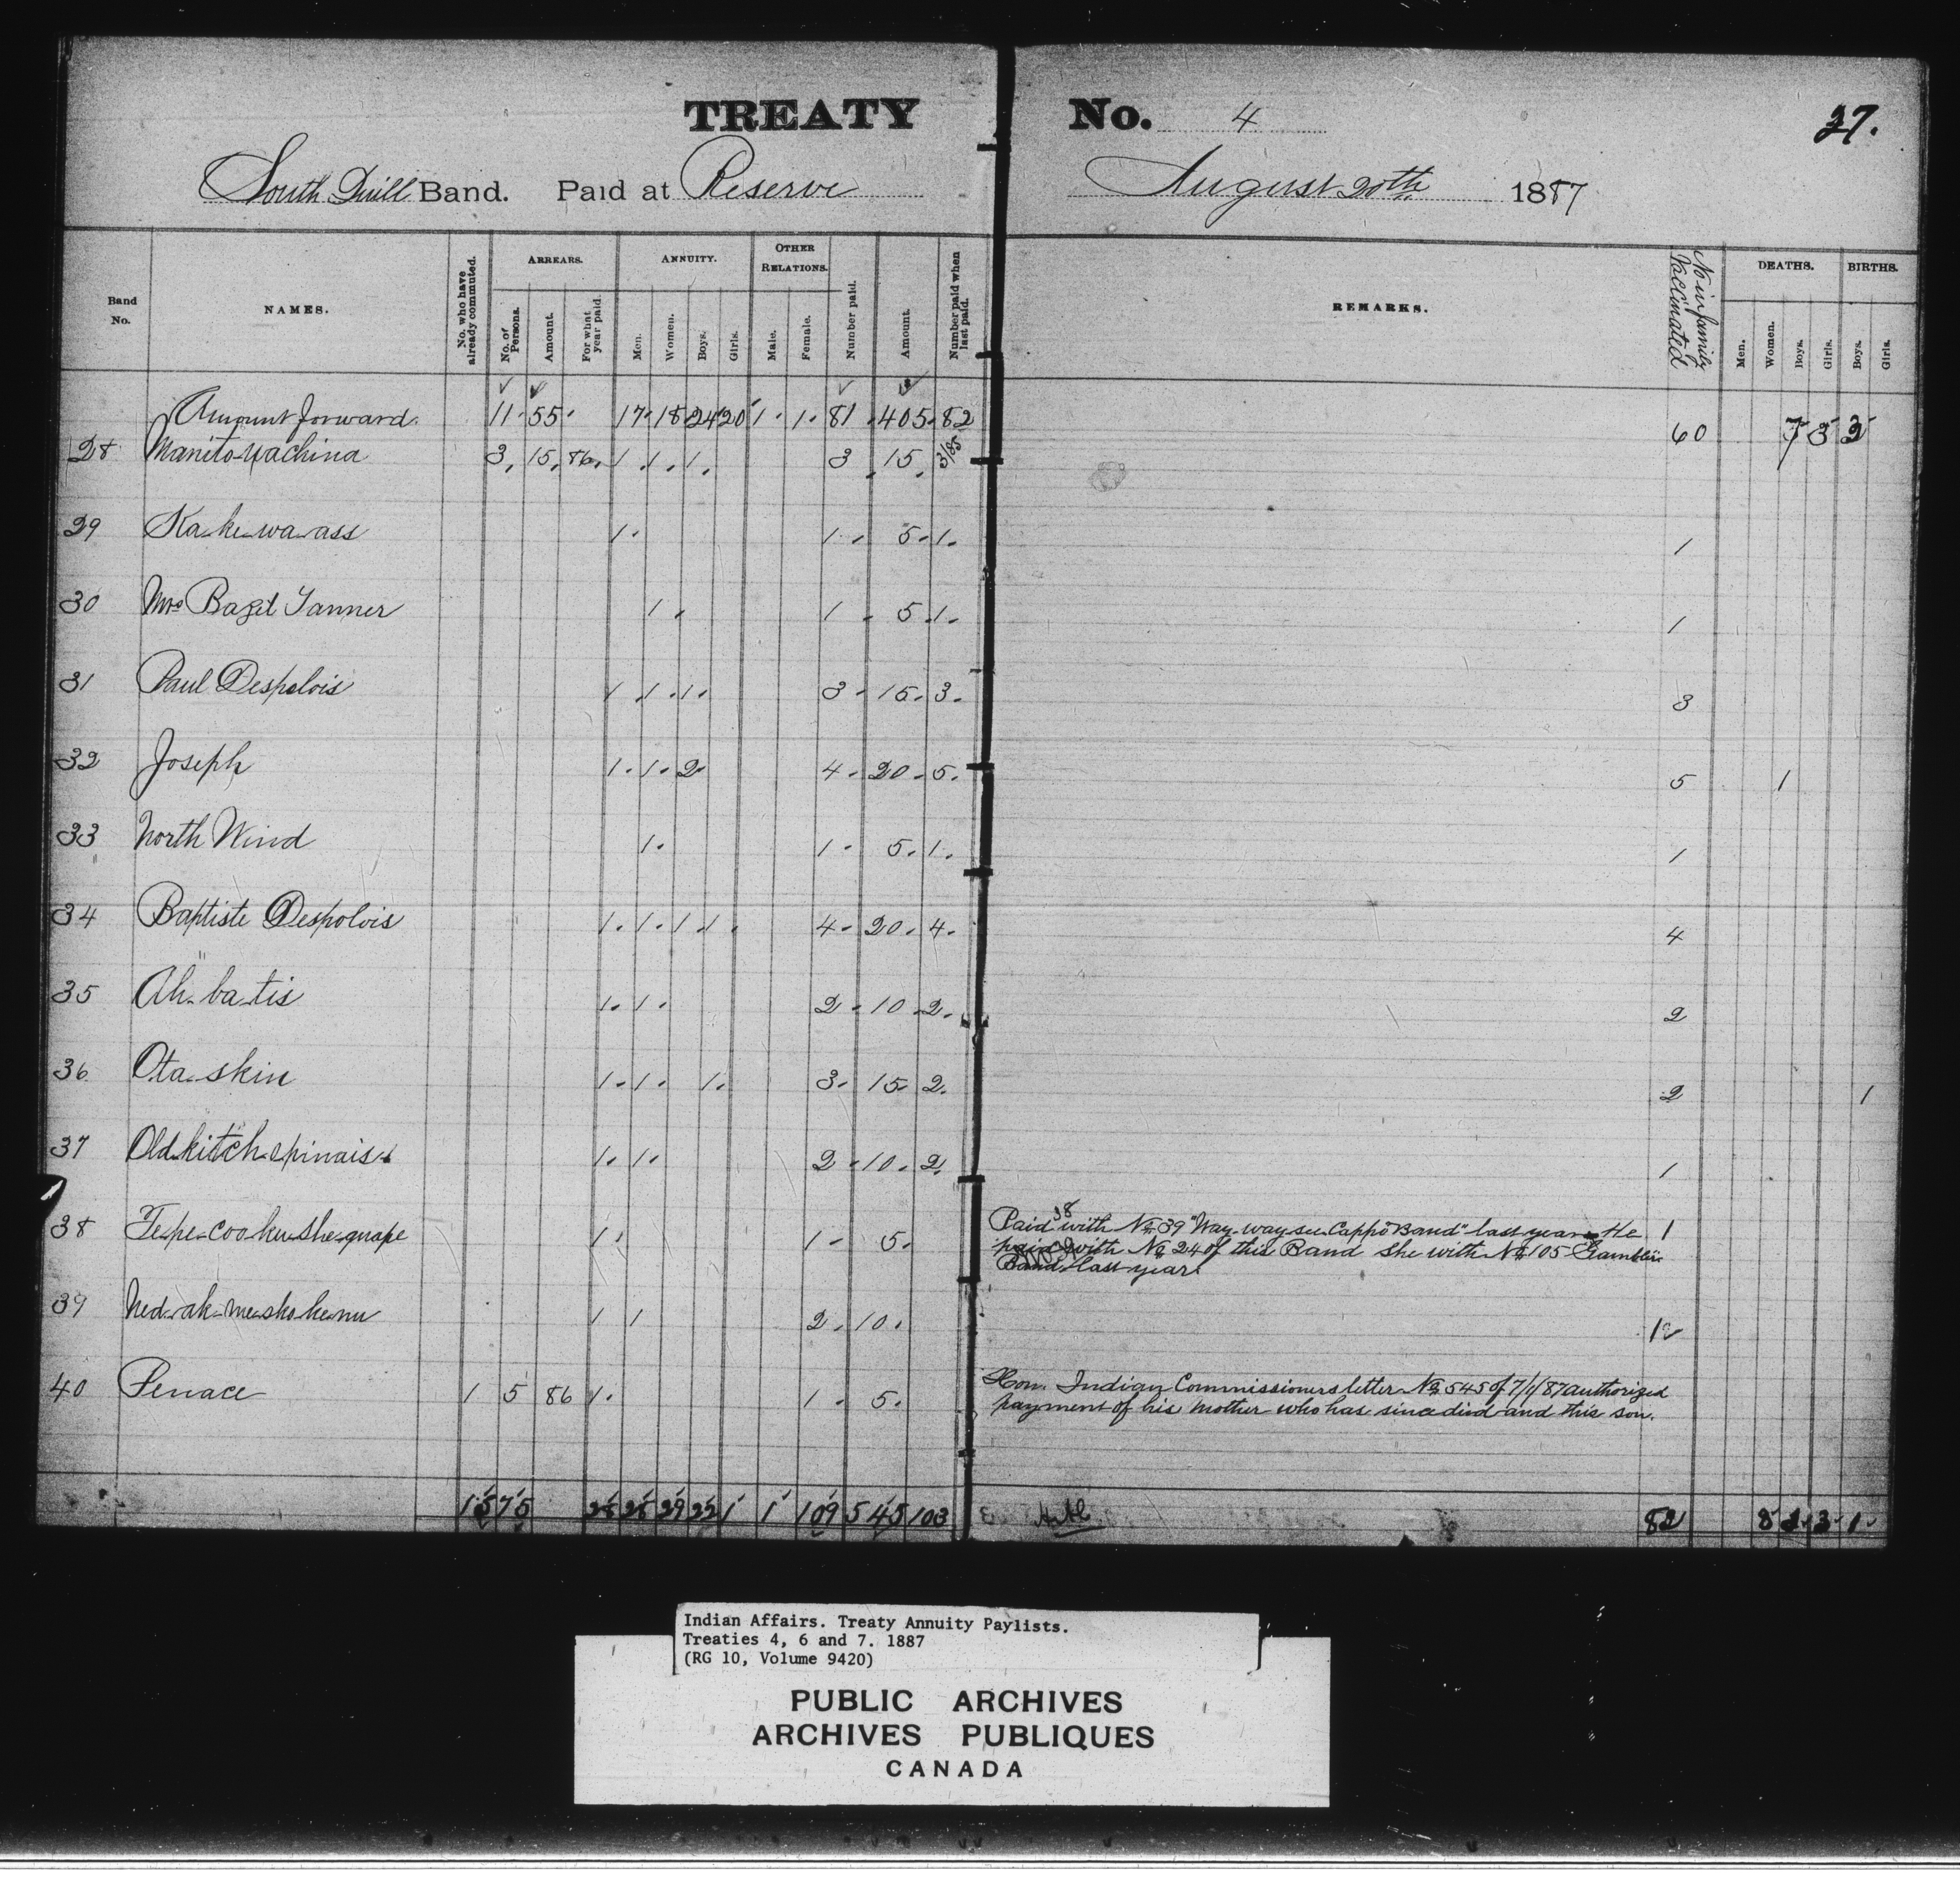 TREATY No. 4 37.
South Quill Band. Paid at Reserve August 20th 1887
Band No. NAMES. No. who have already commuted. ARREARS. No. of Persons. Amount. For what year paid. ANNUITY. Men. Women. Boys. Girls. OTHER RELATIONS. Male. Female. Number paid. Amount. Number paid when last paid. REMARKS. No in family Vaccinated DEATHS. Men. Women. Boys. Girls. BIRTHS. Boys. Girls.
Amount forward. 11. 55. 17. 18 24 20 1. 1. 81. 405. 82 60 7 3 3 2
28 Manito-wachina 3. 15. 86. 1. 1. 1. 3 15. 3/85
29 Ka-ke-wa-ass 1. 1. 5. 1. 1
30 Mrs Bazil Tanner 1. 1. 5. 1. 1
31 Paul Despolois 1. 1. 1. 3. 15. 3. 3
32 Joseph 1. 1. 2. 4. 20. 5. 5 1
33 North Wind 1. 1. 5. 1. 1
34 Baptiste Despolois 1. 1. 1. 1. 4. 20. 4. 4
35 Ah-ba-tis 1. 1. 2. 10. 2. 2
36 Ota-skin 1. 1. 1. 3. 15. 2. 2 1
37 Old kitch-epinais 1. 1. 2. 10. 2. 1
38 Te-pe-coo-ke-she-quape 1. 1. 5. 1
Paid 38 with No 39 "Way-way-see-Cappo Band" last year He
with No 24 of this Band She with No 105 Gamblers
Band last year.
39 Ned-ak-me-sho-ke-nu 1 1 2. 10. 1
40 Penace 1 5 86 1. 1. 5.
Hon. Indian Commissioners letter No 545 of 7/1/87 authorized
payment of his mother who has since died and this son.
15 75 25 26 29 22 1 1 109 545 103 82 8 3 1
Indian Affairs. Treaty Annuity Paylists.
Treaties 4, 6 and 7. 1887
(RG 10, Volume 9420)
PUBLIC ARCHIVES
ARCHIVES PUBLIQUES
CANADA